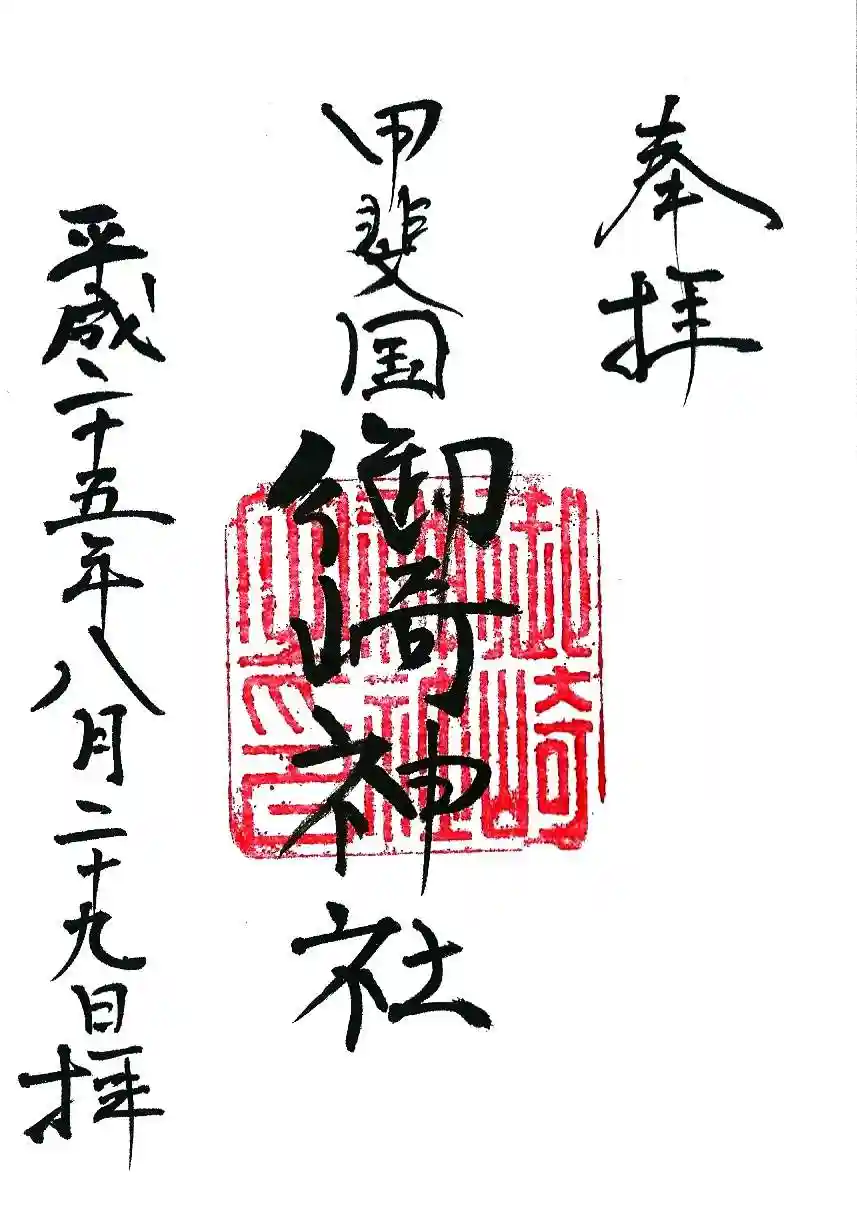 奉拝
甲斐国
御崎神社
平成二十五年八月二十九日拝
御崎
神社